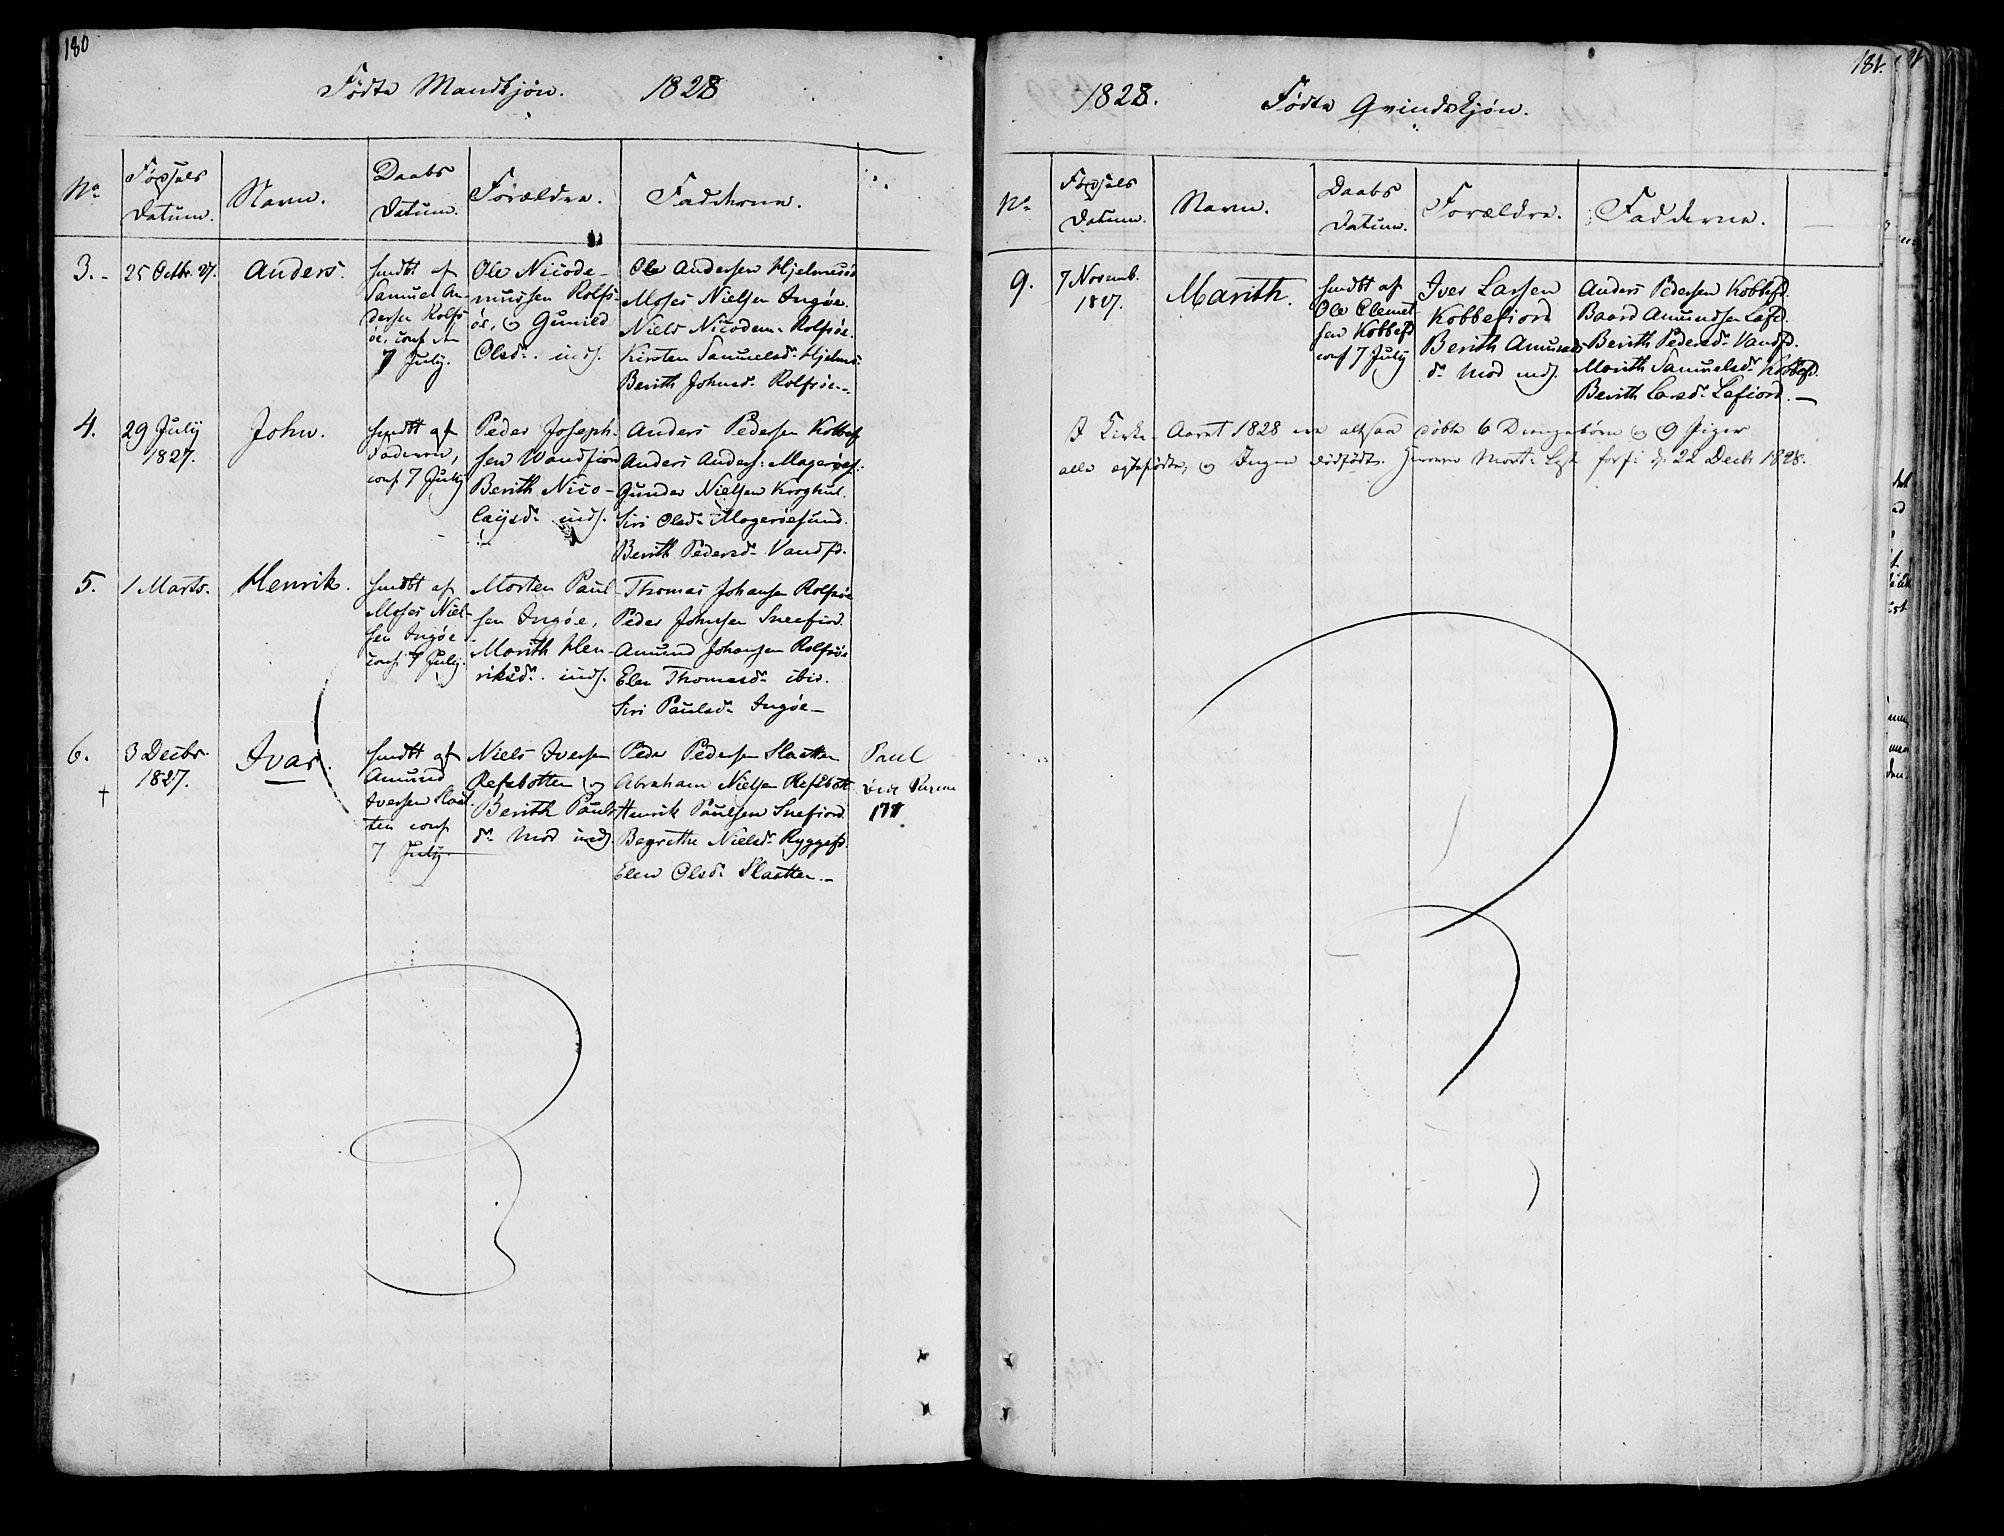 180
Fødte Mandkjøn. 1828
No
Fødsels
Datum.
Navn.
Daabs
Datum.
Forældre.
Fadderne.
3.
25 Octbr. 27.
Anders.
hmdbt af
Samuel An-
dersen Rolfs
øe, conf. den
7 July.
Ole Nicode-
mussen Rolfs-
øe, og Gunild
Olsdr. inds.
Ole Andersen Hjelmsøe
Moses Nielsen Ingøe.
Niels Nicodem: Rolfsøe.
Kirsten Samuelsdr Hjelms:
Berith Johnsdr Rolfsøe.
4.
29 July
1827.
John.
hmdbt af
Faderen,
conf 7 July
Peder Joseph-
sen Vandfiord
Berith Nico-
laysdr inds.
Anders Pedersen Kobbef
Anders Anders: Magerøes:
Gunder Nielsen
Siri Olsdr Magerøesund.
Berith Pedersdr Vandfd.
5.
1 Marts.
Henrik.
hmdbt af
Moses Niel-
sen Ingøe
conf 7 July.
Morten Paul-
sen Ingøe,
Marith Hen-
riksdr. inds.
Thomas Johansen Rolfsøe
Peder Johnsen Sneefiord.
Amund Johansen Rolfsøe
Elen Thomasdr ibid.
Siri Paulsdr Ingøe
6.
†
3 Decbr.
1827.
Ivar.
hmdbt af
Amund
Iversen Slaat
ten conf
7 July.
Niels Iversen
Refsbotten og
Berith Pauls
dr Mod inds.
Peder Pedersen Slaatten
Abraham Nielsen Refsbott
Henrik Paulsen Snefiord.
Begrethe Nielsdr Ryggefd.
Elen Olsdr Slaatten.
Paul
vide
177
181.
1828. Fødte Qvindekjøn.
No
Fødsels
Datum.
Navn.
Daabs
Datum.
Forældre.
Fadderne.
9.
7 Novemb.
1827.
Marith.
hmdbt af
Ole Clemet
sen Kobbefd
conf 7 July
Iver Larsen
Kobbefiord
Berith Amunds
dr Mod inds.
Anders Pedersen Kobbefd.
Baard Amundsen Lafd.
Berith Pedersdr Vandfd.
Marith Samuelsdr Kobbefd.
Berith Larsdr Lafiord.
I Kirke-Aaret 1828 ere altsaa døbte 6 Drengebørn og 9 Piger
alle egtefødte, og Ingen dødfødte. d. 22 Decb. 1828.